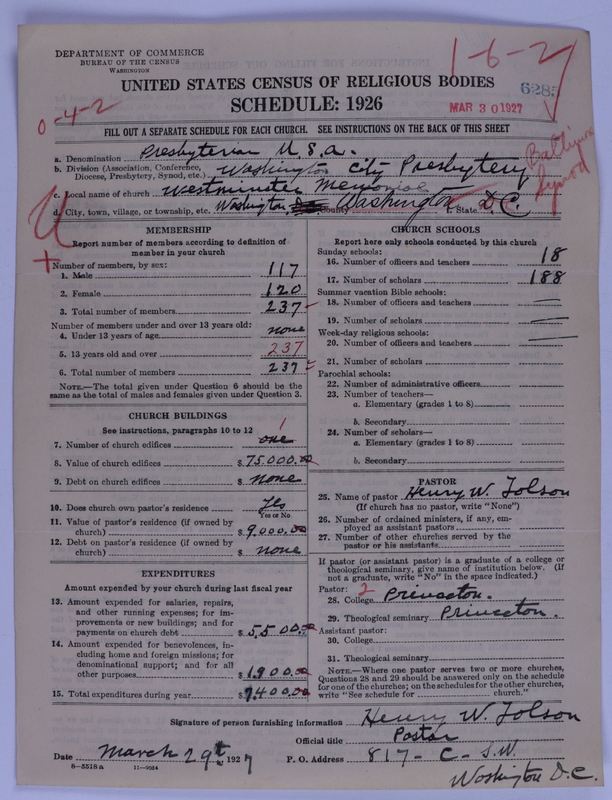 DEPARTMENT OF COMMERCE
BUREAU OF THE CENSUS
WASHINGTON
1-6-2
UNITED STATES CENSUS OF RELIGIOUS BODIES
SCHEDULE: 1926
6285
MAR 30 1927
0-4-2
FILL OUT A SEPARATE SCHEDULE FOR EACH CHURCH. SEE INSTRUCTIONS ON THE BACK OF THIS SHEET
a. Denomination Presbyterian U.S.A.
b. Division (Association, Conference, Diocese, Presbytery, Synod, etc.) Washington City Presbytery
Baltimore Synod
c. Local name of church Westminster Memorial
d. City, town, village, or township, etc. Washington County Washington State D.C.
MEMBERSHIP
Report number of members according to definition of
member in your church
Number of members, by sex:
1. Male 117
2. Female 120
3. Total number of members 237
Number of members under and over 13 years old:
4. Under 13 years of age none
5. 13 years old and over 237
6. Total number of members 237
NOTE.—The total given under Question 6 should be
the same as the total of males and females given under Question 3.
CHURCH BUILDINGS
See instructions, paragraphs 10 to 12
1
7. Number of church edifices one
8. Value of church edifices $ 75000.00
9. Debt on church edifices $ none
10. Does church own pastor's residence Yes
Yes or No
11. Value of pastor's residence (if owned by
church) $ 9000.00
12. Debt on pastor's residence (if owned by
church) $ none
EXPENDITURES
Amount expended by your church during last fiscal year
13. Amount expended for salaries, repairs,
and other running expenses; for im-
provements or new buildings; and for
payments on church debt $ 5500.00
14. Amount expended for benevolences, in-
cluding home and foreign missions; for
denominational support; and for all
other purposes $ 1900.00
15. Total expenditures during year $ 7400.00
CHURCH SCHOOLS
Report here only schools conducted by this church
Sunday schools:
16. Number of officers and teachers 18
17. Number of scholars 188
Summer vacation Bible schools:
18. Number of officers and teachers
19. Number of scholars
Week-day religious schools:
20. Number of officers and teachers
21. Number of scholars
Parochial schools:
22. Number of administrative officers
23. Number of teachers—
a. Elementary (grades 1 to 8)
b. Secondary
24. Number of scholars—
a. Elementary (grades 1 to 8)
b. Secondary
PASTOR
25. Name of pastor Henry W. Tolson
(If church has no pastor, write "None")
26. Number of ordained ministers, if any, em-
ployed as assistant pastors
27. Number of other churches served by the
pastor or his assistants
If pastor (or assistant pastor) is a graduate of a college or
theological seminary, give name of institution below. (If
not a graduate, write "No" in the space indicated.)
Pastor: 2
28. College Princeton.
29. Theological seminary Princeton.
Assistant pastor:
30. College
31. Theological seminary
NOTE.—Where one pastor serves two or more churches,
Questions 28 and 29 should be answered only on the schedule
for one of the churches; on the schedules for the other churches,
write "See schedule for church."
Signature of person furnishing information Henry W. Tolson
Official title Pastor
Date March 29th, 1927 P. O. Address 817-C-S.W.
8-5518a 11-9034
Washington D.C.